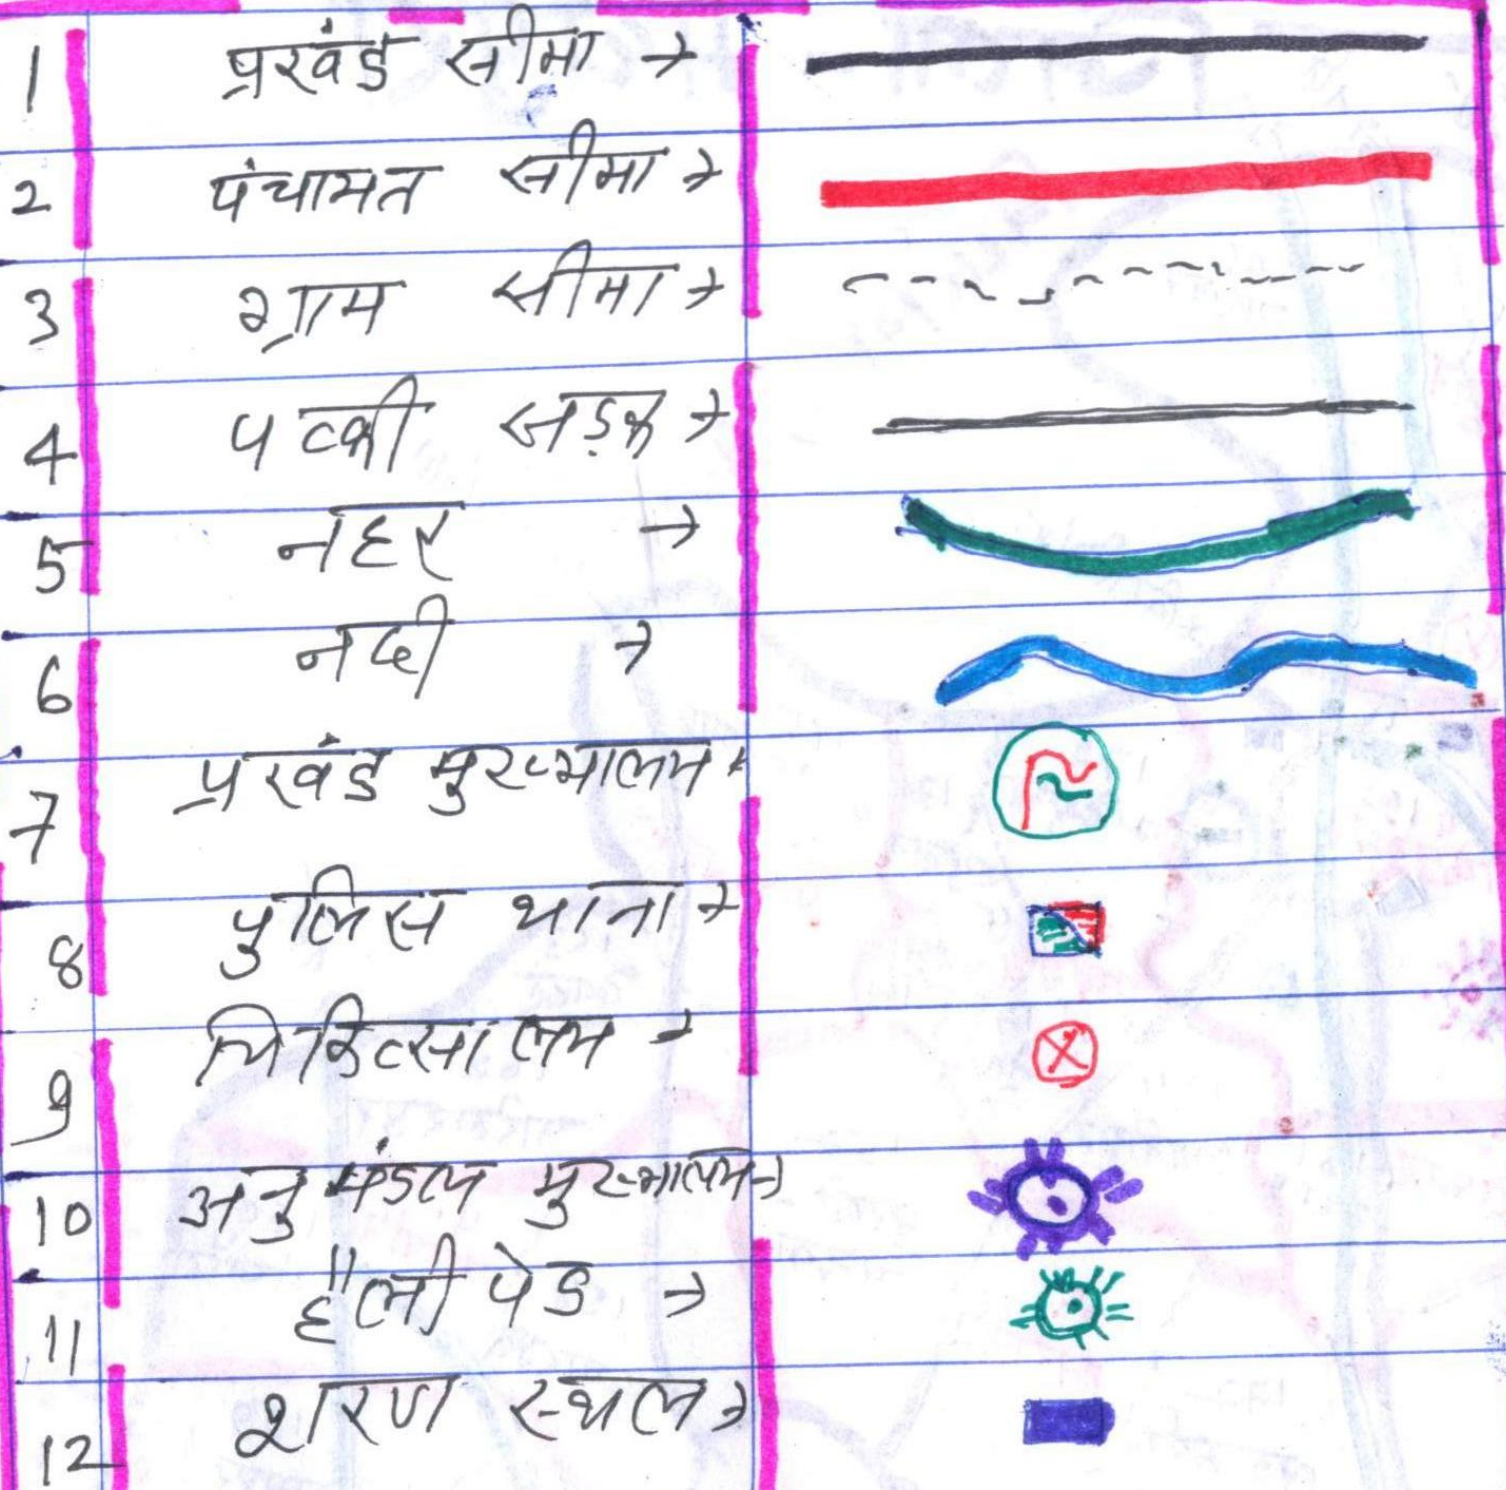 1 प्रखंड सीमा →
2 पंचायत सीमा →
3 ग्राम सीमा →
4 पक्की सड़क →
5 नहर →
6 नदी →
7 प्रखंड मुख्यालय →
8 पुलिस थाना →
9 चिकित्सालय →
10 अनुमंडल मुख्यालय →
11 हैली पेड →
12 शरण स्थल →